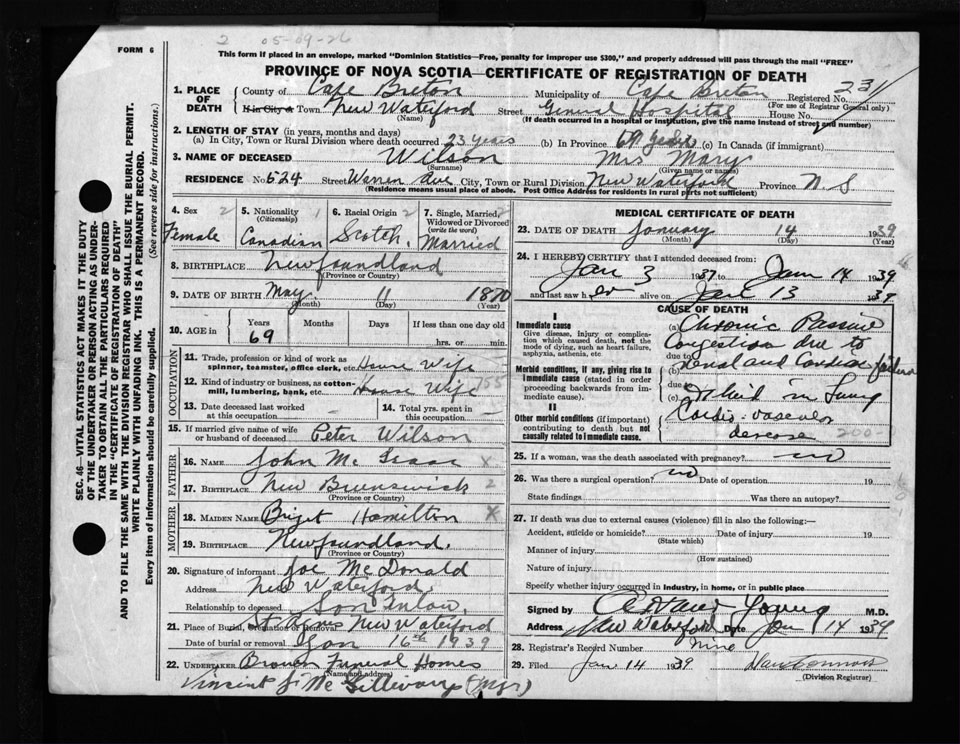 2 05-09-26
FORM 6
This form if placed in an envelope, marked "Dominion Statistics—Free, penalty for improper use $300," and properly addressed will pass through the mail "FREE"
PROVINCE OF NOVA SCOTIA—CERTIFICATE OF REGISTRATION OF DEATH
SEC. 46—VITAL STATISTICS ACT MAKES IT THE DUTY
OF THE UNDERTAKER OR PERSON ACTING AS UNDER-
TAKER TO OBTAIN ALL THE PARTICULARS REQUIRED
IN THE "CERTIFICATE OF REGISTRATION OF DEATH"
AND TO FILE THE SAME WITH THE DIVISION REGISTRAR WHO SHALL ISSUE THE BURIAL PERMIT.
WRITE PLAINLY WITH UNFADING INK. THIS IS A PERMANENT RECORD.
Every item of information should be carefully supplied. (See reverse side for instructions.)
1. PLACE OF DEATH County of Cape Breton Municipality of Cape Breton Registered No. 231
(For use of Registrar General only)
If in City & Town New Waterford Street General Hospital House No.
(Name) (If death occurred in a hospital or institution, give the name instead of street and number)
2. LENGTH OF STAY (in years, months and days)
(a) In City, Town or Rural Division where death occurred 23 years (b) In Province 69 (c) In Canada (if immigrant)
3. NAME OF DECEASED Wilson Mrs Mary
(Surname) (Given name or names)
RESIDENCE No. 524 Street Warren Ave City, Town or Rural Division New Waterford Province N. S
(Residence means usual place of abode. Post Office Address for residents in rural parts not sufficient)
4. Sex 2 Female
5. Nationality (Citizenship) 1 Canadian
6. Racial Origin 2 Scotch
7. Single, Married, Widowed or Divorced (write the word) 2 Married
8. BIRTHPLACE Newfoundland
(Province or Country)
9. DATE OF BIRTH May 11 1870
(Month) (Day) (Year)
10. AGE in Years Months Days If less than one day old
69 hrs. or min.
OCCUPATION
11. Trade, profession or kind of work as spinner, teamster, office clerk, etc. House Wife
12. Kind of industry or business, as cotton-mill, lumbering, bank, etc. House Wife 155
13. Date deceased last worked at this occupation
14. Total yrs. spent in this occupation
15. If married give name of wife or husband of deceased Peter Wilson
FATHER
16. NAME John Mc Isaac X
17. BIRTHPLACE New Brunswick 2
(Province or Country)
MOTHER
18. MAIDEN NAME Briget Hamilton X
19. BIRTHPLACE Newfoundland.
(Province or Country)
20. Signature of informant Joe McDonald
Address New Waterford
Relationship to deceased Son Inlaw.
21. Place of Burial, Cremation or Removal St New Waterford
Date of burial or removal Jan 16th 1939
22. UNDERTAKER Brown Funeral Homes
(Name and address)
Vincent J. Mc Gillivary (Mgr)
MEDICAL CERTIFICATE OF DEATH
23. DATE OF DEATH January 14 1939
(Month) (Day) (Year)
24. I HEREBY CERTIFY that I attended deceased from:
Jan 3 1937 to Jan 14 1939
and last saw her alive on Jan 13 1939
CAUSE OF DEATH
I
Immediate cause
Give disease, injury or complication which caused death, not the mode of dying, such as heart failure, asphyxia, asthenia, etc
Morbid conditions, if any, giving rise to immediate cause (stated in order proceeding backwards from immediate cause).
II
Other morbid conditions (if important) contributing to death but not causally related to immediate cause.
(a) Chronic Passive
Congestion due to
due to renal and Cardiac failure
(b)
due to
(c) in Lung
Cardio-vascular
200-
25. If a woman, was the death associated with pregnancy? no
26. Was there a surgical operation? no Date of operation 19
State findings Was there an autopsy?
27. If death was due to external causes (violence) fill in also the following:—
Accident, suicide or homicide? Date of injury 19
(State which)
Manner of injury
(How sustained)
Nature of injury
Specify whether injury occurred in industry, in home, or in public place
Signed by Young M.D.
Address New Waterford Date Jan 14 1939
28. Registrar's Record Number Nine
29. Filed Jan 14 1939
(Division Registrar)